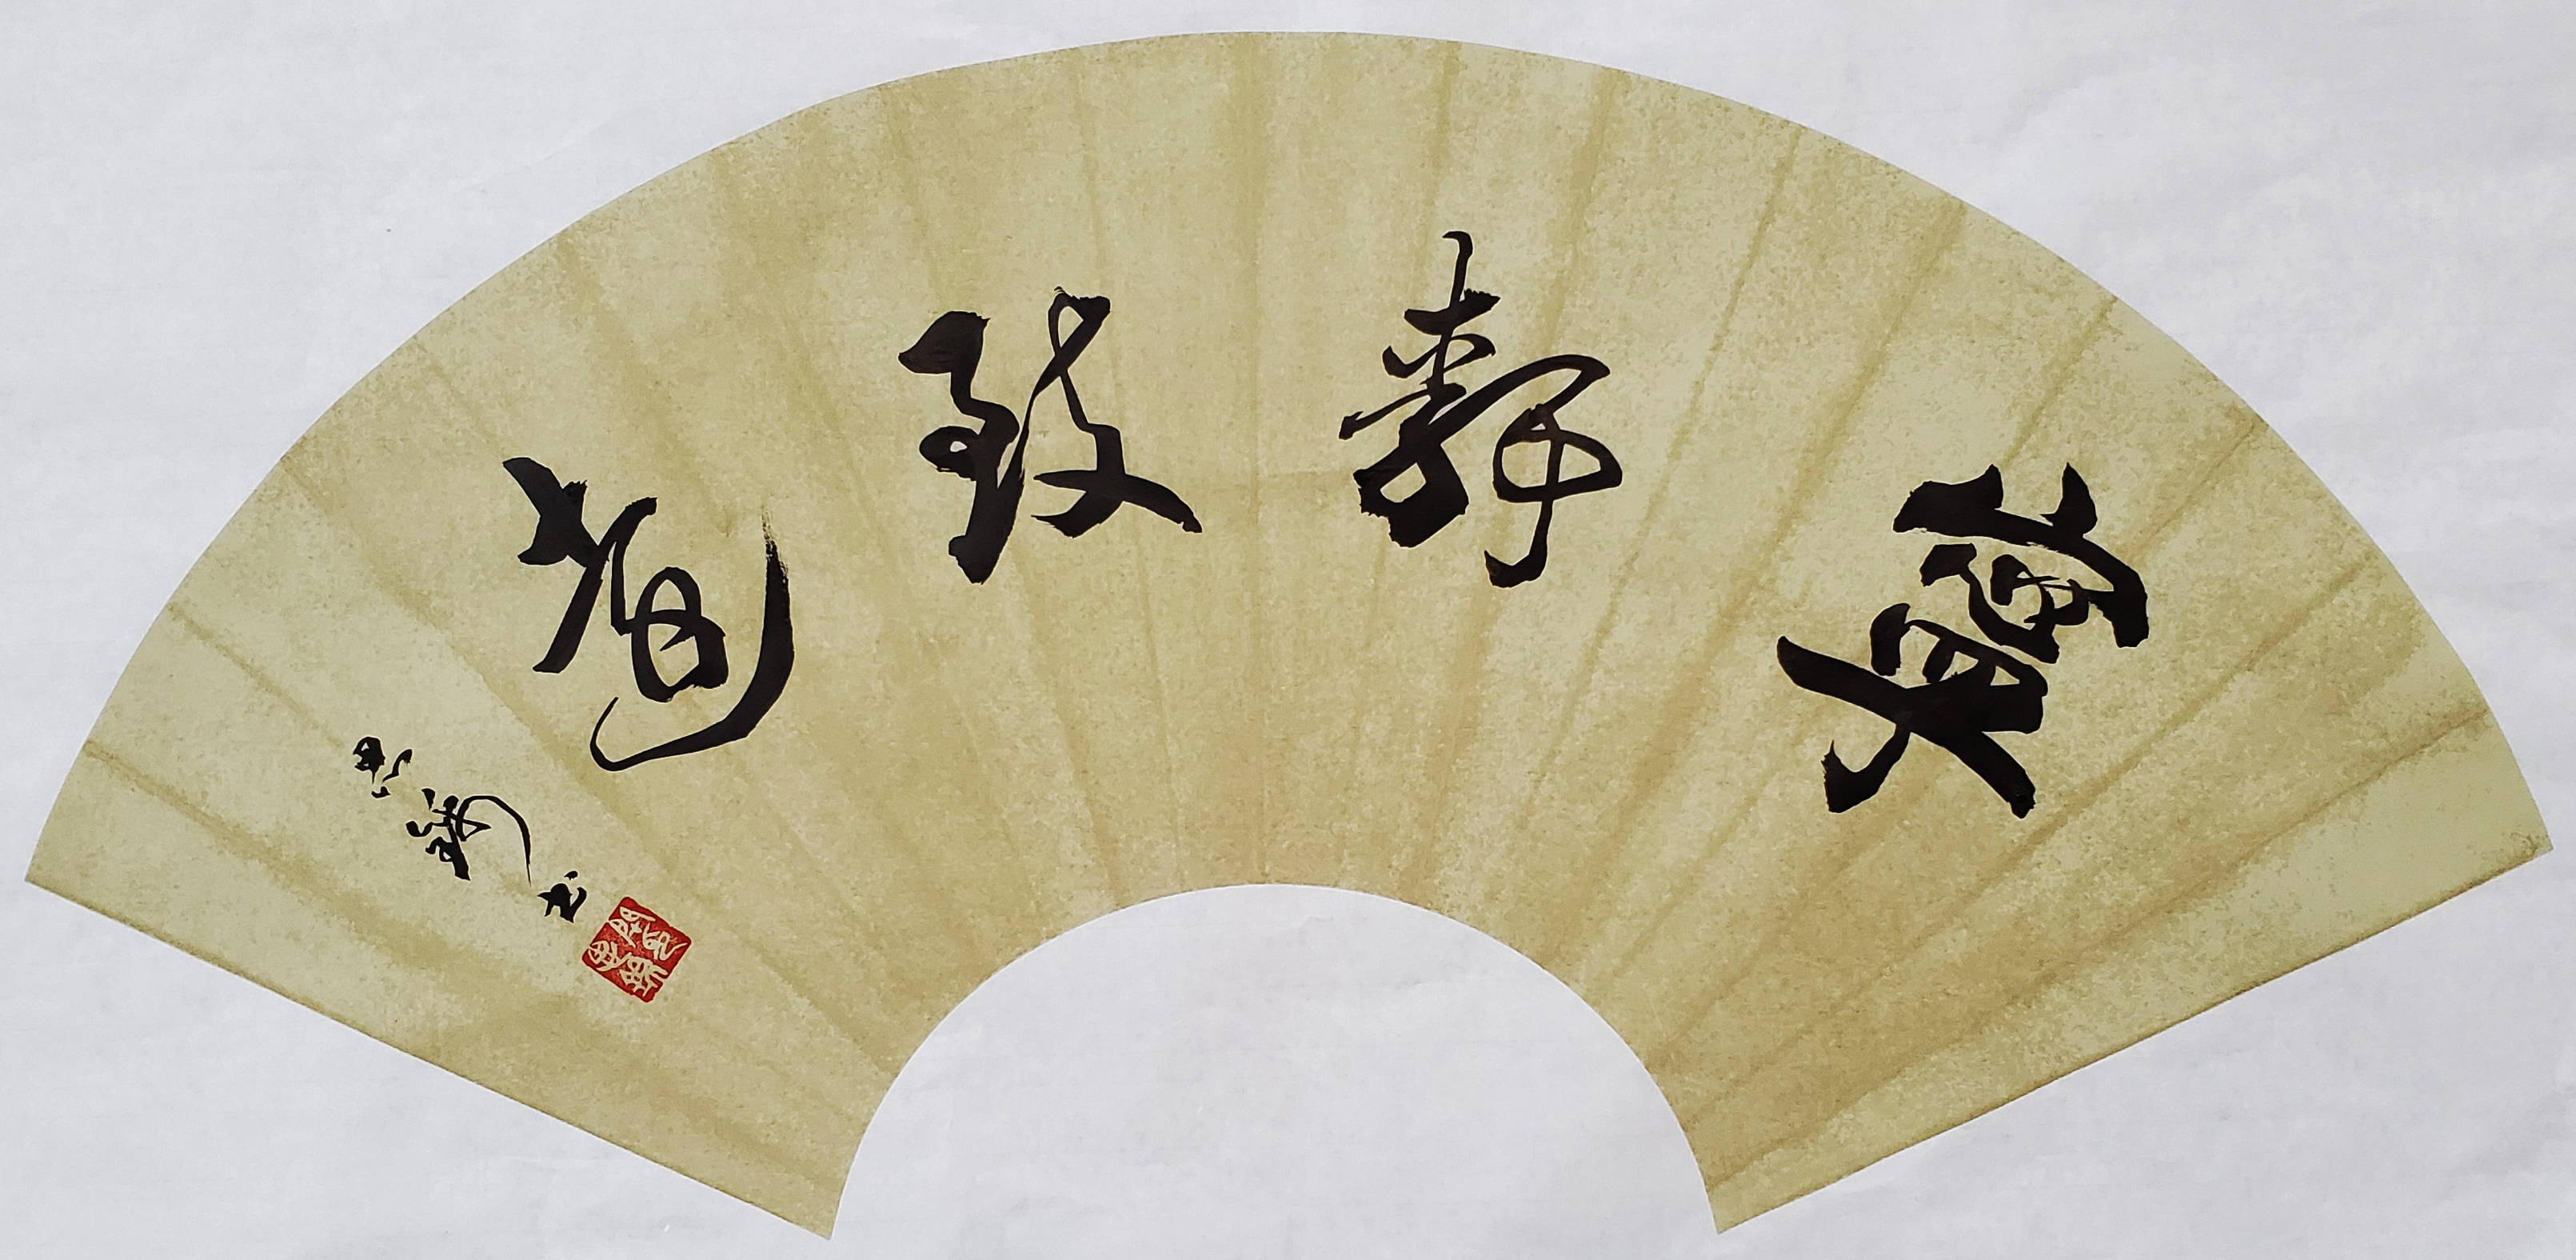 寧靜致遠
书